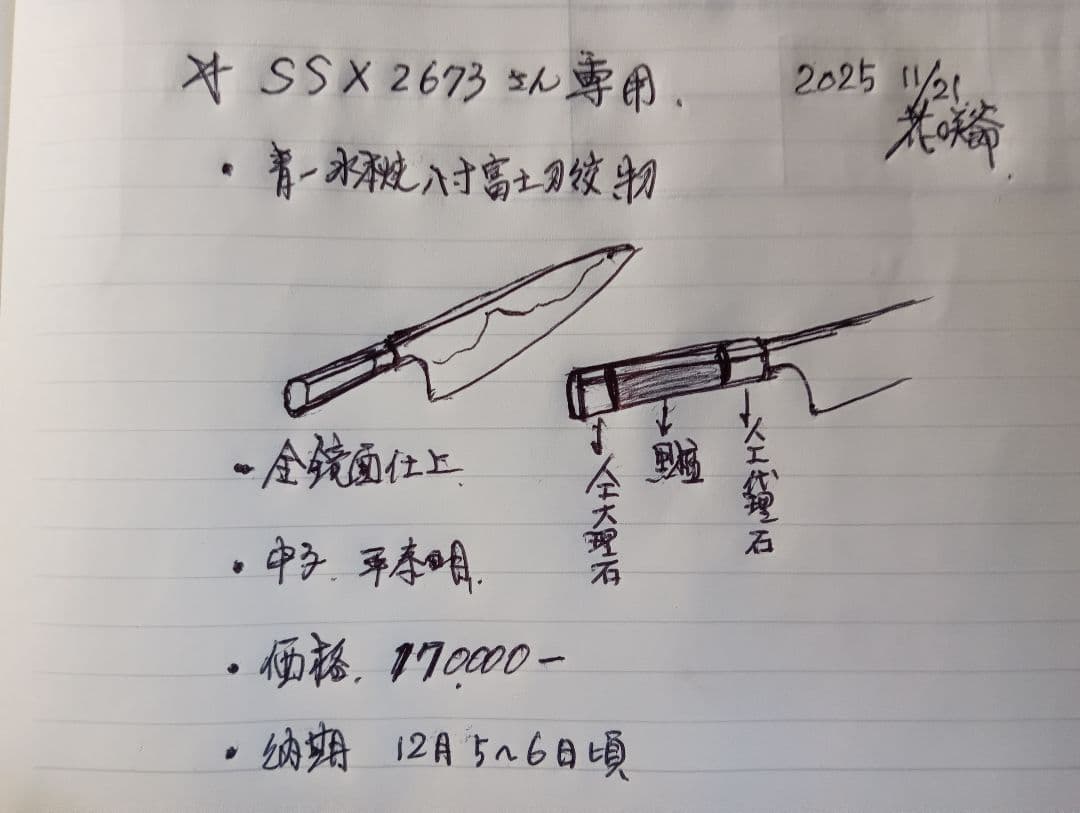 ☆ SSX2673さん専用.
2025 11/21
・青一水本焼八寸富士刃紋
・全鏡面仕上
人工大理石
黒檀
人工代理石
・中子.
・価格. 170.000-
・納期 12月5~6日頃